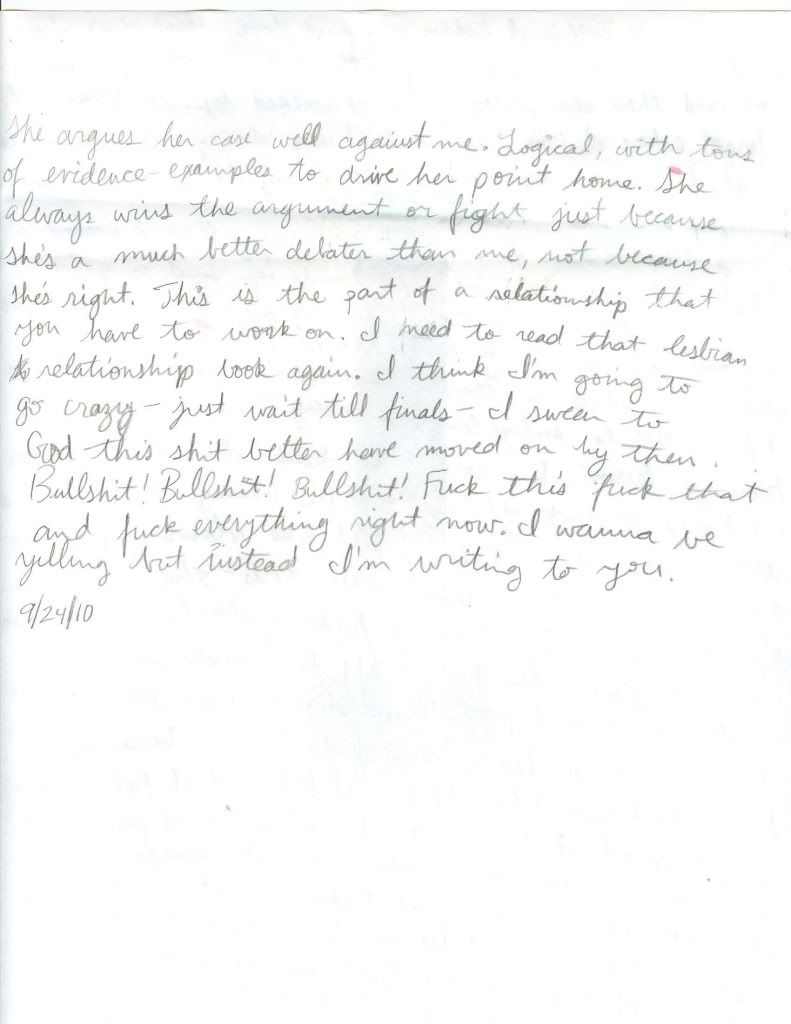 She argues her case well against me. Logical, with tons
of evidence - examples to drive her point home. She
always wins the argument or fight just because
she's a much better debater than me, not because
she's right. This is the part of a relationship that
you have to work on. I need to read that lesbian
relationship book again. I think I'm going to
go crazy - just wait till finals - I swear to
God this shit better have moved on by then.
Bullshit! Bullshit! Bullshit! Fuck this fuck that
and fuck everything right now. I wanna be
yelling but instead I'm writing to you.
9/24/10